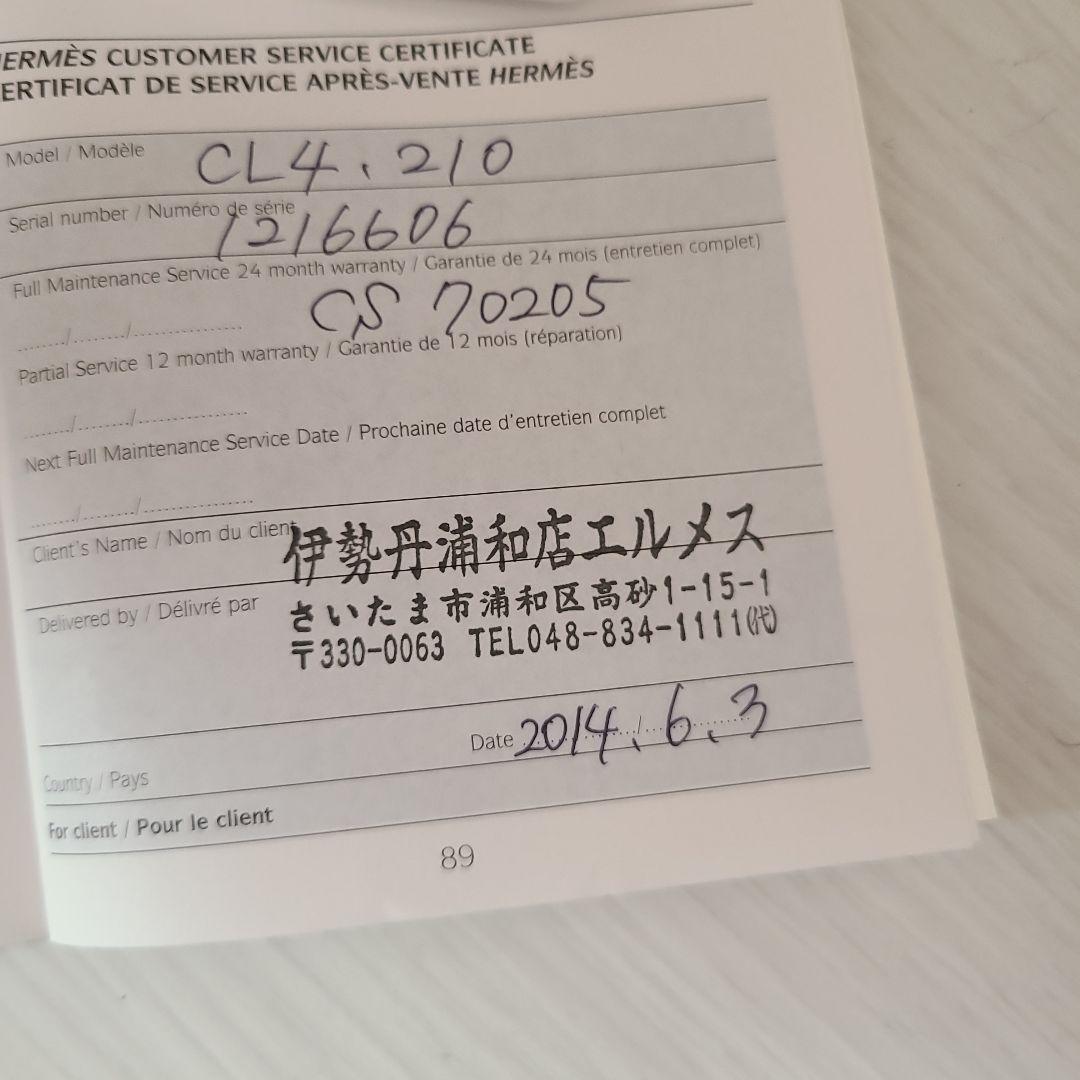 ERMÈS CUSTOMER SERVICE CERTIFICATE
ERTIFICAT DE SERVICE APRÈS-VENTE HERMÈS
Model / Modèle CL4.210
Serial number / Numéro de série 1216606
Full Maintenance Service 24 month warranty / Garantie de 24 mois (entretien complet)
......../......../................ CS 70205
Partial Service 12 month warranty / Garantie de 12 mois (réparation)
......../......../................
Next Full Maintenance Service Date / Prochaine date d'entretien complet
......../......../................
Client's Name / Nom du client
伊勢丹浦和店エルメス
Delivered by / Délivré par
さいたま市浦和区高砂1-15-1
〒330-0063 TEL048-834-1111㈹
Date 2014.6.3
Country / Pays
For client / Pour le client
89